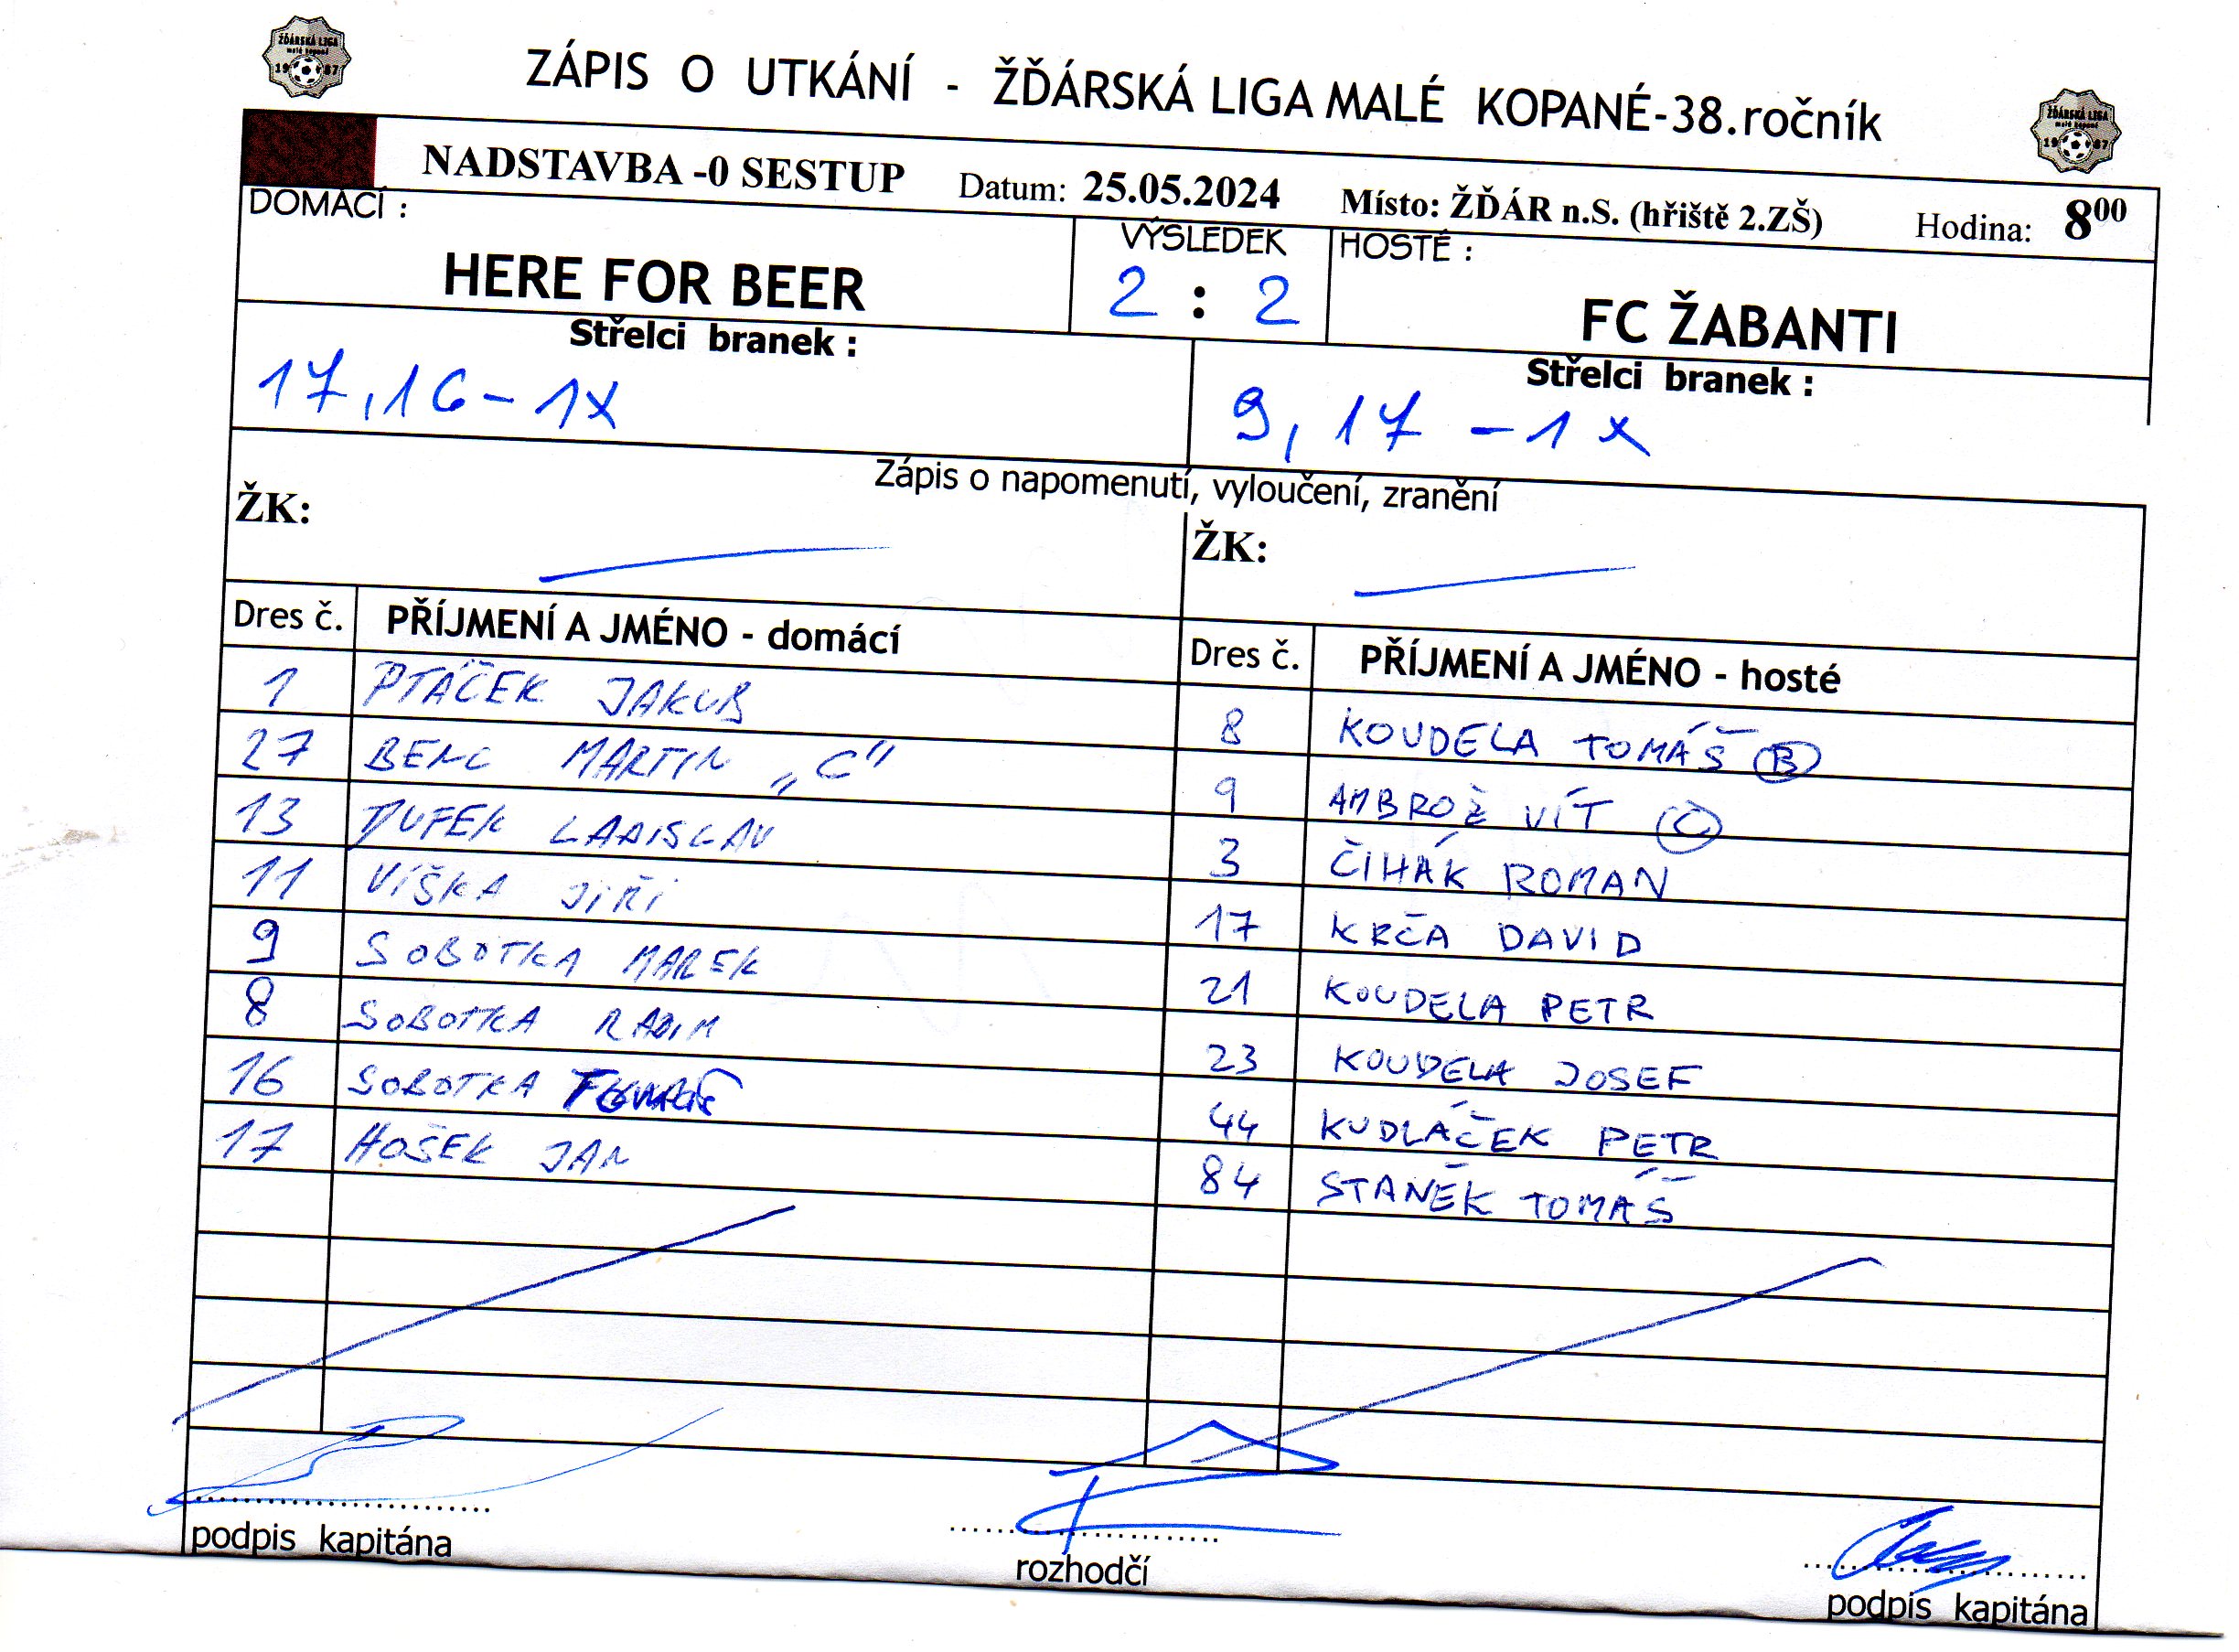 ŽĎÁRSKÁ LIGA
malé kopané
1987
ZÁPIS O UTKÁNÍ - ŽĎÁRSKÁ LIGA MALÉ KOPANÉ-38.ročník
ŽĎÁRSKÁ LIGA
1987
NADSTAVBA -0 SESTUP Datum: 25.05.2024 Místo: ŽĎÁR n.S. (hřiště 2.ZŠ) Hodina: 8⁰⁰
DOMÁCÍ : VÝSLEDEK HOSTÉ :
HERE FOR BEER 2 : 2 FC ŽABANTI
Střelci branek : Střelci branek :
17,16 - 1x 9, 17 - 1x
Zápis o napomenutí, vyloučení, zranění
ŽK: ŽK:
Dres č. PŘÍJMENÍ A JMÉNO - domácí Dres č. PŘÍJMENÍ A JMÉNO - hosté
1 PTÁČEK JAKUB 8 KOUDELA TOMÁŠ B
27 BENC MARTIN „C" 9 AMBROŽ VÍT C
13 TUFEK LADISLAV 3 ČIHÁK ROMAN
11 VÍŠKA JIŘÍ 17 KRČA DAVID
9 SOBOTKA MAREK 21 KOUDELA PETR
8 SOBOTKA RADIM 23 KOUDELA JOSEF
16 SOBOTKA TOMÁŠ 44 KUDLÁČEK PETR
17 HOŠEK JAN 84 STANĚK TOMÁŠ
podpis kapitána rozhodčí podpis kapitána